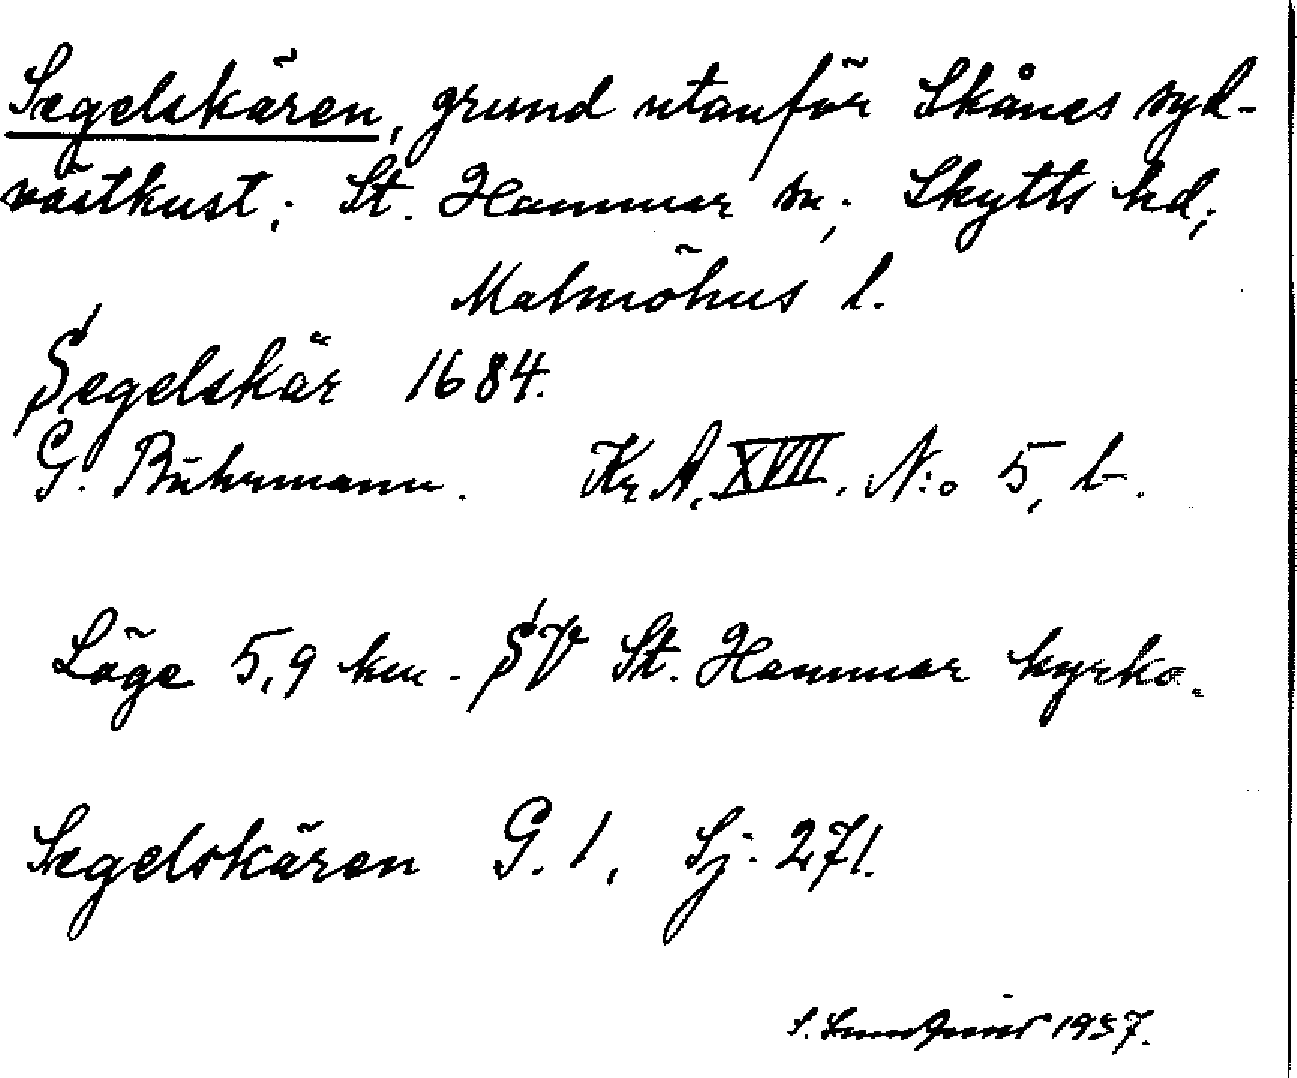 Segelskären, grund utanför Skånes syd-
västkust; St. Hammar sn; Skytts hd;
Malmöhus l.
Segelskär 1684.
G. Buhrmann. Kr A, XVII. N:o 5, b.
Läge 5,9 km. SV St. Hammar kyrka.
Segelskären G. 1, Sj. 271.
1937.